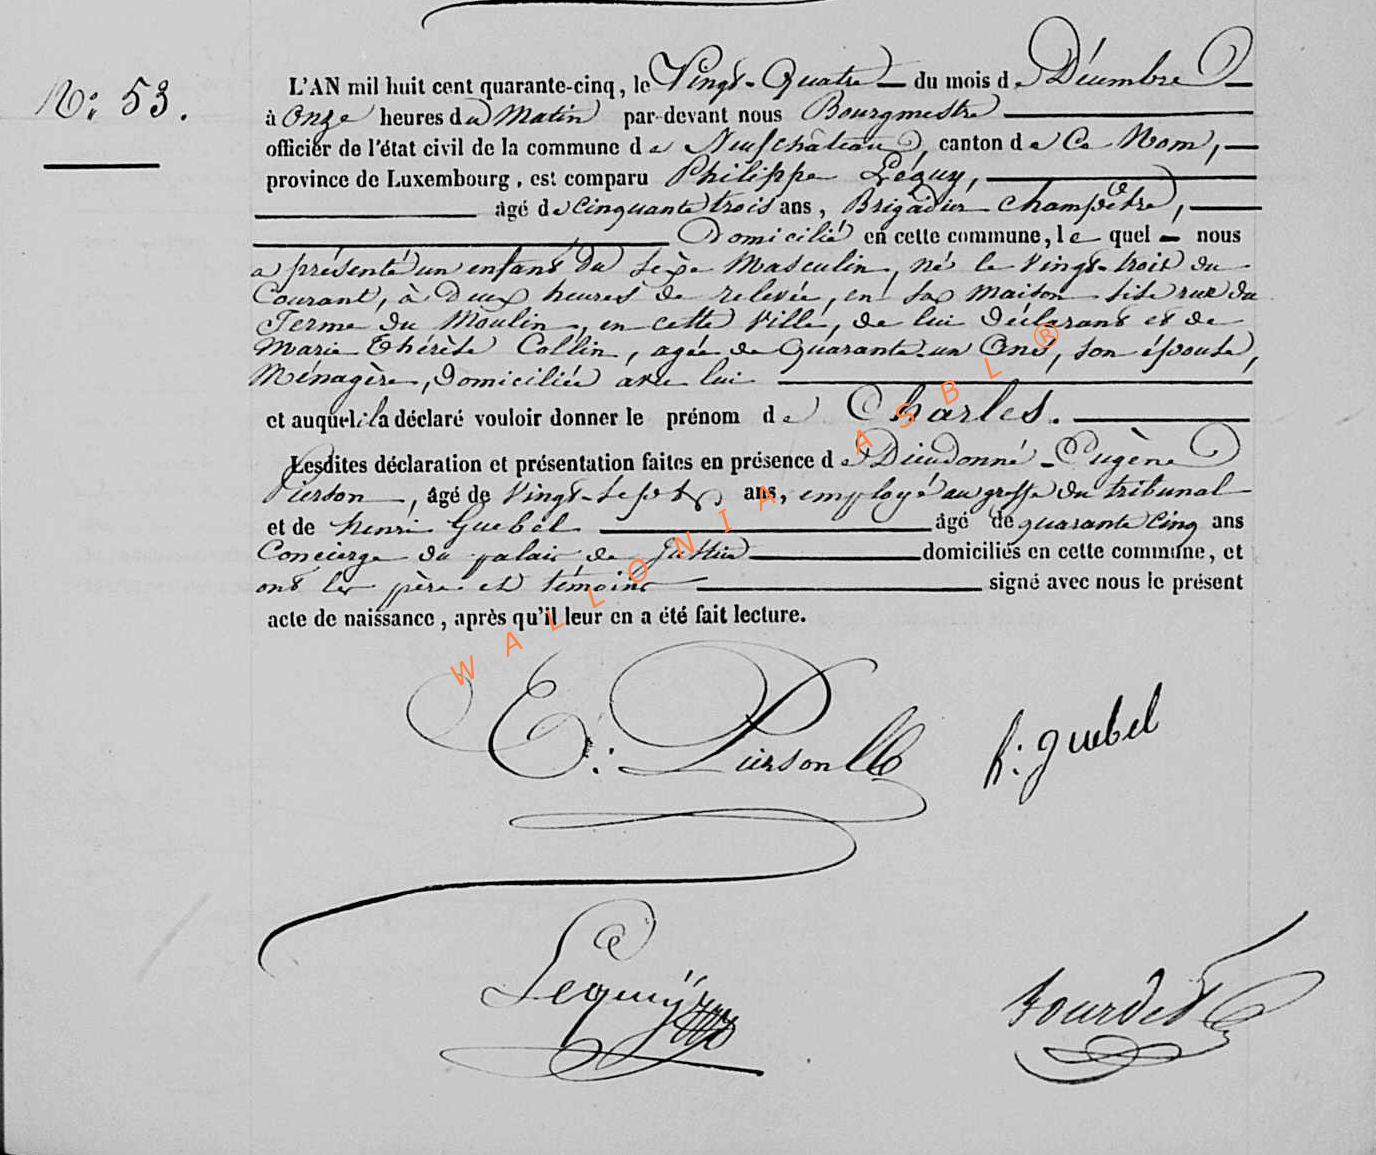 N°: 53.
L'AN mil huit cent quarante-cinq, le Vingt-Quatre du mois de Décembre
à Onze heures du Matin par-devant nous Bourgmestre
officier de l'état civil de la commune de Neufchâteau, canton de Ce Nom,
province de Luxembourg, est comparu Philippe Lequy,
âgé de Cinquante trois ans, Brigadier champêtre,
Domicilié en cette commune, le quel nous
a présenté un enfant du sexe Masculin, né le Vingt-trois du
Courant, à Deux heures de relevée, en sa maison sise rue du
Terme du Moulin, en cette Ville, de lui Déclarant et de
Marie Thérèse Collin, agée de Quarante-un Ans, son épouse,
Ménagère, Domiciliée avec lui
et auquel il a déclaré vouloir donner le prénom de Charles.
Lesdites déclaration et présentation faites en présence de Dieudonné-Eugène
Pierson, âgé de Vingt-sept ans, employé au greffe du tribunal
et de henri Guebel âgé de quarante Cinq ans
Concierge du palais de Justice domiciliés en cette commune, et
ont les père et témoins signé avec nous le présent
acte de naissance, après qu'il leur en a été fait lecture.
E: Pierson
h: guebel
Lequy
Tourdet
WALLONIA ASBL ®